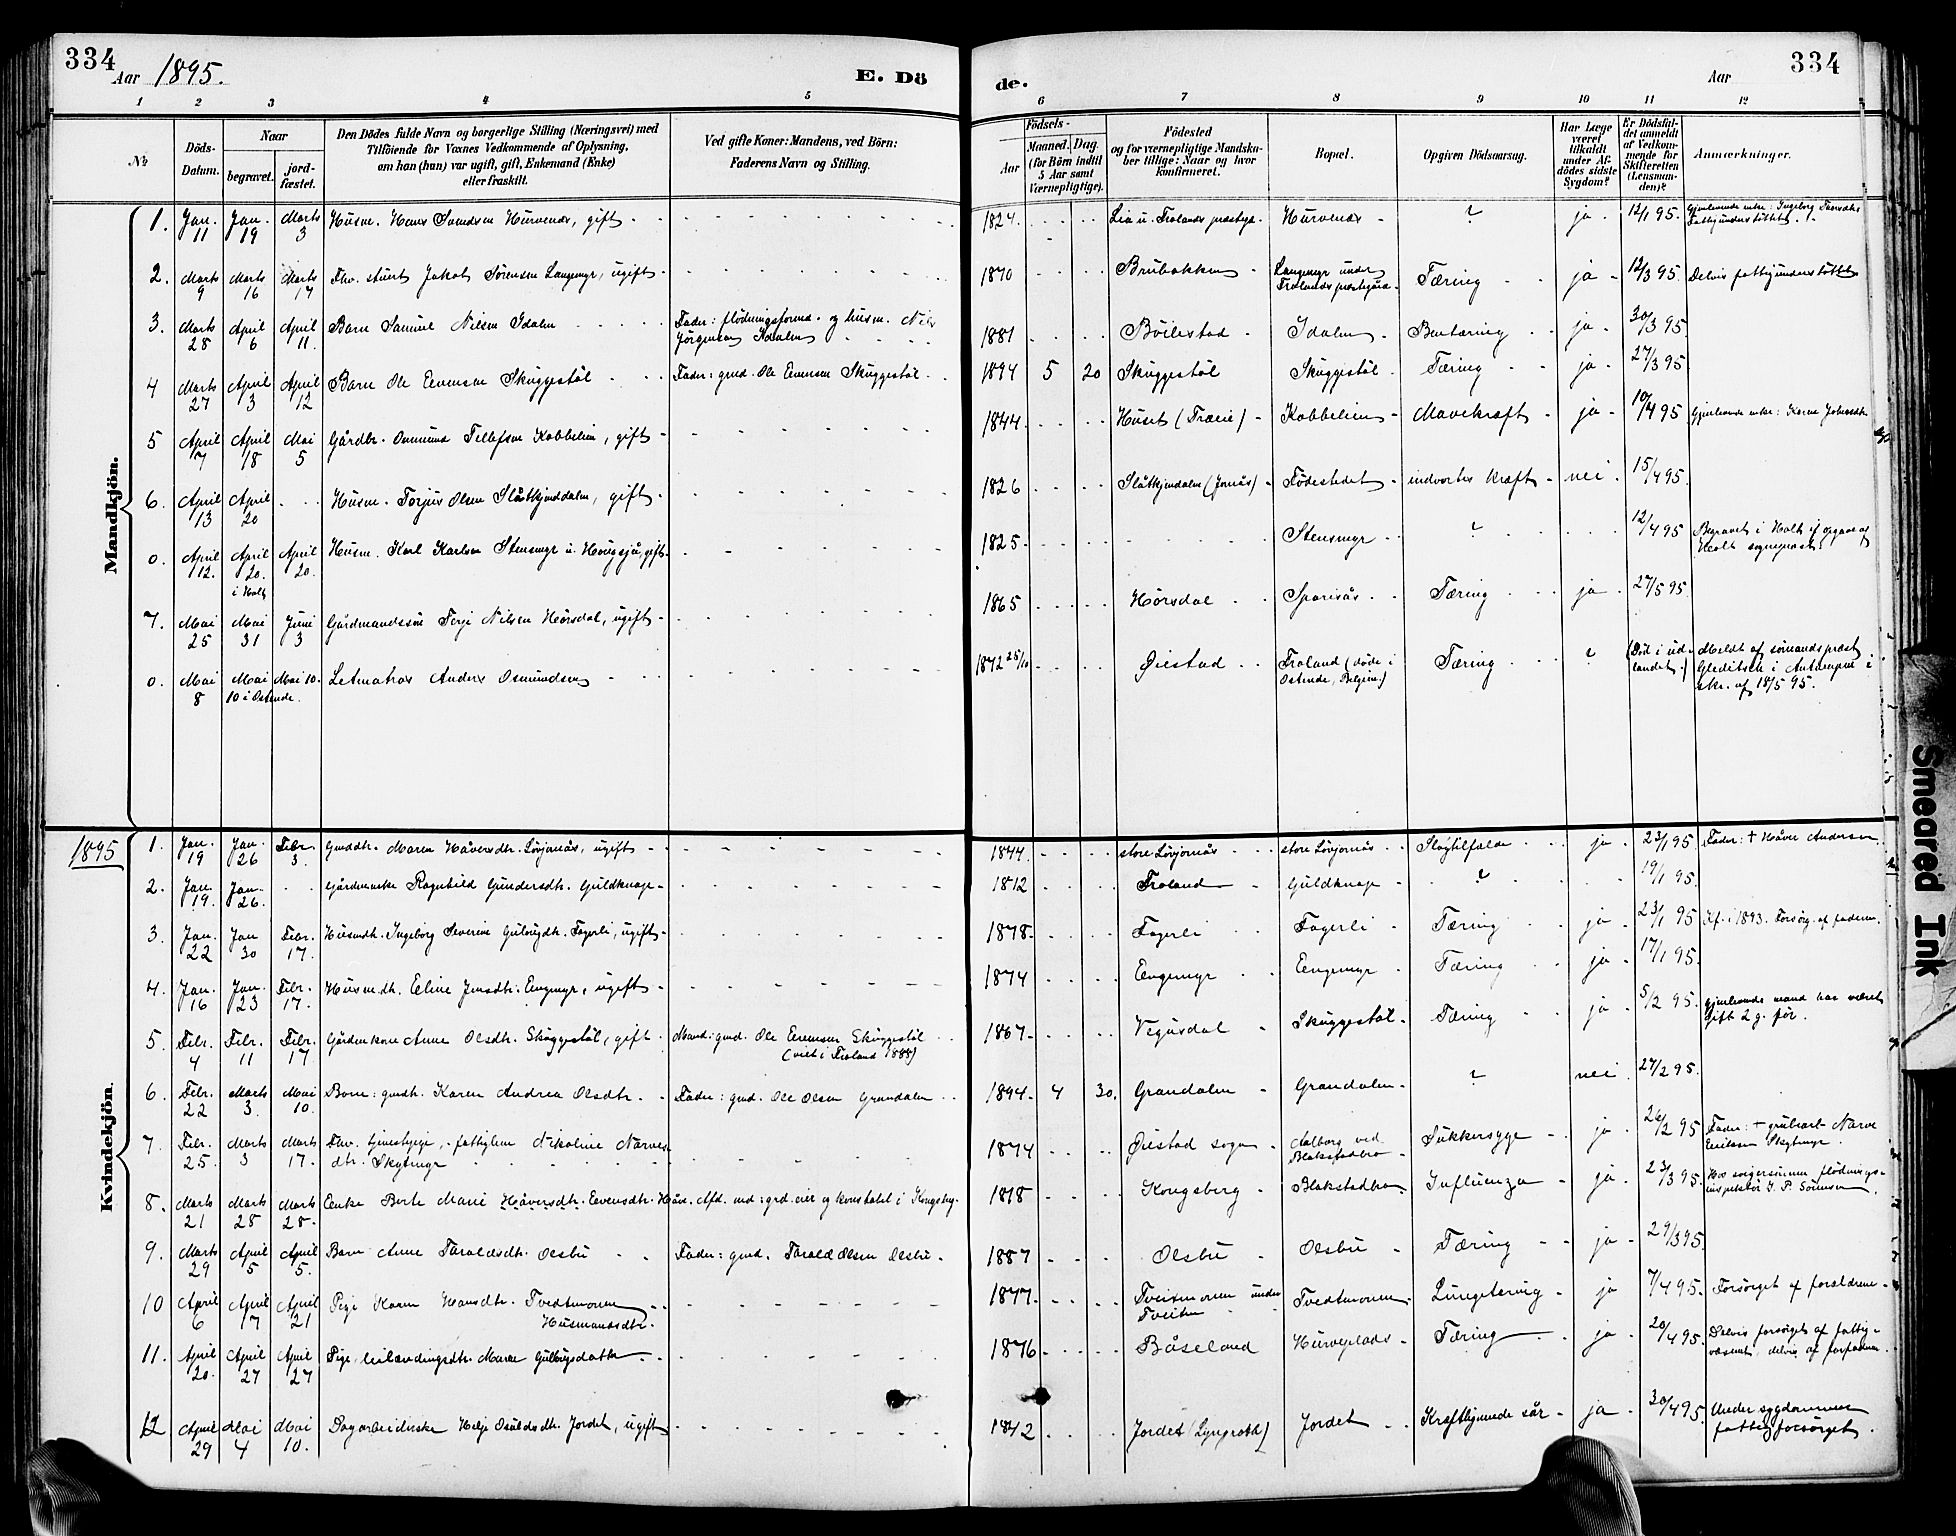 334
Aar 1895.
E. Dö
de.
Aar
334
1 2 3 4 5 6 7 8 9 10 11 12
№
Döds-Datum.
Naar
begravet.
jord-fæstet.
Den Dödes fulde Navn og borgerlige Stilling (Næringsvei) med
Tilföiende for Voxnes Vedkommende af Oplysning,
om han (hun) var ugift, gift, Enkemand (Enke)
eller fraskilt.
Ved gifte Koner: Mandens, ved Börn:
Faderens Navn og Stilling.
Födsels-
Aar
Maaned. Dag.
(for Börn indtil
5 Aar samt
Værnepligtige).
Födested
og for værnepligtige Mandska-
ber tillige: Naar og hvor
konfirmeret.
Bopæl.
Opgiven Dödsaarsag.
Har Læge
været
tilkaldt
under Af-
dödes sidste
Sygdom?
Er Dödsfal-
det anmeldt
af Vedkom-
mende for
Skifteretten
(Lensman-
den)?
Anmærkninger.
Mandkjön.
1. Jan. 11 Jan. 19 Marts 3 Husm. Hans Svendsen Hurvenæs, gift 1824 Lia u. Frolands præstegd. Hurvenæs ? ja 12/1 95. Gjenlevende enke: Ingeborg
Fattigunderstöttet.
2. Marts 9 Marts 16 Marts 17 Fhv. stuert Jakob Sörensen Langemyr, ugift 1870 Brubakken Langemyr under
Frolands præstegård Tæring ja 12/3 95. Delvis fattigunderstöttet
3. Marts 28 April 6 April 11. Barn Samuel Nilsen Idalen Fader: flödningsformd. og husm. Nils
Jörgensen Idalen 1881 Böilestad Idalen Bentæring ja 30/3 95.
4 Marts 27 April 3 April 12 Barn Ole Evensen Skuggestöl Fader: gmd. Ole Evensen Skuggestöl 1894 5 20 Skuggestöl Skuggestöl Tæring ja 27/3 95.
5 April 7 April 18 Mai 5 Gårdbr. Osmund Tellefsen Kobbelien, gift 1844 Huset (Træve) Kobbelien Mavekræft ja 10/4 95 Gjenlevende enke: Karen
6. April 13 April 20 Husm. Torjus Olsen Slåtkjendalen, gift 1826 Slåtkjendalen (Jornås) Födestedet indvortes kræft nei 15/4 95.
0. April 12. April 20. i Holt April 20. Husm. Karl Karlsen Stensmyr u. Hougsjå, gift 1825 Stensmyr ? 12/4 95 Begravet i Holt if opgave af
Holt sognepræst.
7. Mai 25 Mai 31 Juni 3 Gårdmandssön Terje Nilsen Hörsdal, ugift 1865 Hörsdal Sparsås Tæring ja 27/5 95.
0. Mai 8 Mai 10 i Ostende. Mai 10. Letmatros Anders Osmundsen 1872 25/10 Öiestad Froland (döde i
Ostende, Belgien.) Tæring ? (Död i ud-
landet.) Meldt af sömandspræst
Gleditsch i Antwerpen i
skr. af 18/5 95.
1895
Kvindekjön.
1. Jan. 19 Jan. 26 Febr. 3. Gmddtr. Maren Håversdtr. Lövjomås, ugift 1844 store Lövjomås store Lövjomås Slagtilfælde ja 23/1 95. Fader: † Håver Andersen
2. Jan. 19. Jan. 26. Gårdmenke Ragnhild Gundersdtr. Guldknap 1812 Froland Guldknap ? 19/1 95.
3. Jan. 22 Jan 30 Febr. 17. Husmdtr. Ingeborg Severine Gulougdtr. Fagerli, ugift 1878 Fagerli Fagerli Tæring ja 23/1 95 Kf. i 1893. Forsörg. af faderen.
4. Jan. 16 Jan. 23 Febr. 17. Husmdtr. Eline Jensdtr. Engemyr, ugift 1874 Engemyr Engemyr Tæring ja 17/1 95.
5. Febr. 4 Febr. 11 Febr. 17 Gårdmkone Anne Olsdtr. Skuggestöl, gift Mand: gmd. Ole Evensen Skuggestöl
(viet i Froland 1888) 1867 Vegusdal Skuggestöl Tæring ja 5/2 95. gjenlevende mand har været
gift 2 g. för.
6. Febr. 22 Marts 3. Mai 10. Barn: gmdtr. Karen Andrea Olsdtr. Fader: gmd. Ole Olsen Grandalen 1894 4 30. Grandalen Grandalen ? nei 27/2 95.
7. Febr. 25. Marts 3 Marts 17. Fhv. tjenestpige, fattiglem Nikoline Narves-
dtr. Skytmyr 1874 Öiestad sogn Aalborg ved
Blakstadbro Sukkersyge ja 26/2 95 Fader: † grubearb. Narve
Eriksen Skytmyr.
8. Marts 21 Marts 28 Marts 28. Enke Berte Marie Håversdtr. Evensdtr. Hås. Afd. md: grd.eier og konstabel i Kongsbg. 1818 Kongsberg Blakstadbro Influenza ja 23/3 95. Hos svigersönnen flödnings-
inspektör J. P. Sörensen.
9. Marts 29 April 5 April 5. Barn Anne Taraldsdtr. Olsbu Fader: gmd. Tarald Olsen Olsbu 1887 Olsbu Olsbu Tæring ja 29/3 95.
10 April 6 April 17 April 21 Pige Karen Hansdtr. Tvedtmoren
Husmandsdtr. 1877 Tveitmoren under
Tveiten Tvedtmoren Lungetæring ja 7/4 95. Forsörget af forældrene
11. April 20. April 27 April 27 Pige, Maren Gulougsdatter 1876 Båseland Hurveplads Tæring ja 20/4 95. Delvis forsörget af fattig-
væsenet, delvis af
12 April 29 Mai 4 Mai 10. Dagarbeiderske Helje Osuldsdtr. Jordet, ugift 1842 Jordet (Lyngroth) Jordet Kræftlignende sår ja 30/4 95. Under sygdommen
fattigforsörget.
Smeared Ink